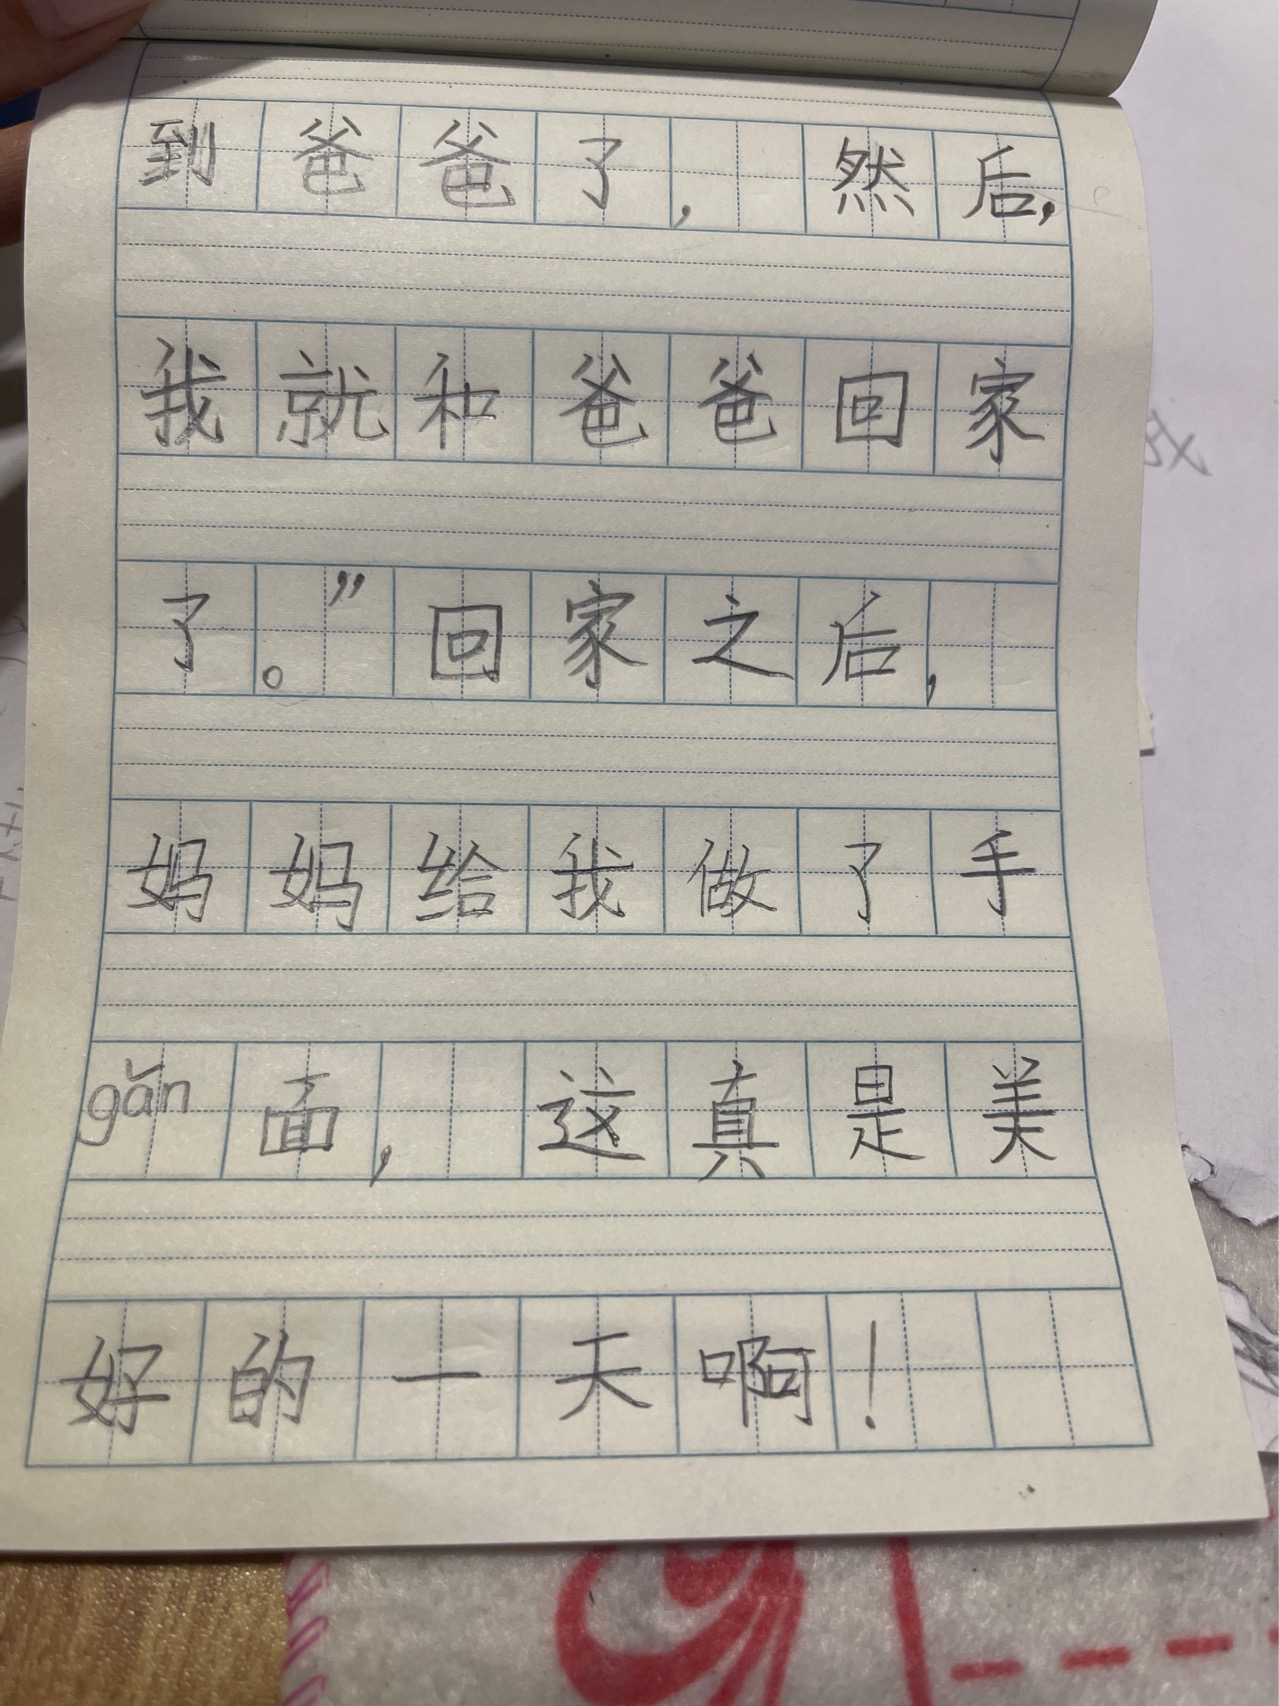 到爸爸了，然后，
我就和爸爸回家
了。”回家之后，
妈妈给我做了手
gǎn面，这真是美
好的一天啊！